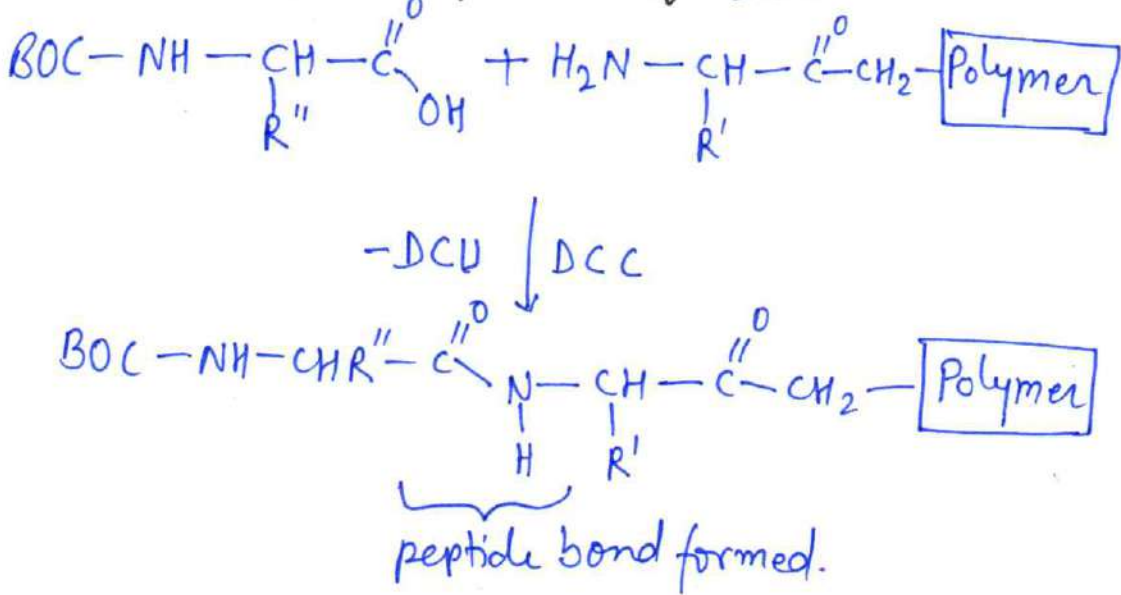 BOC – NH – CH – C =O OH + H₂N – CH – C =O – CH₂ – Polymer
R" R'
-DCU DCC
BOC – NH – CHR" – C =O N – CH – C =O – CH₂ – Polymer
H R'
peptide bond formed.